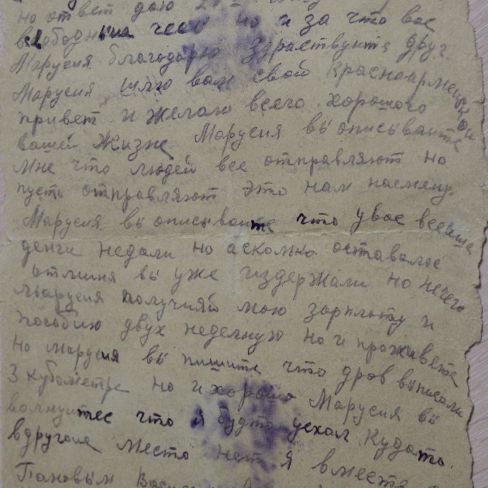 но ответ даю
свободный час но и за что вас
Маруся благодарю Здраствуите друг
Маруся, шлю вам свой Красноармейский
привет и желаю всего хорошого
вашей Жизне Маруся вы описываите
мне что людей все отправляют но
пусть отправляют это нам насмену.
Маруся вы описываите что у вас всеище
денги недали но асколко осталося
вы уже издержали но нечего
Маруся получияй мою зарплоту и
пособию двух неделную но и проживете
но Маруся вы пишите что дров выписали
3 кубометре но и хорошо Маруся вы
волнуитес что я будто уехал Кудато
вдругое место нет я вместе с
Пановым